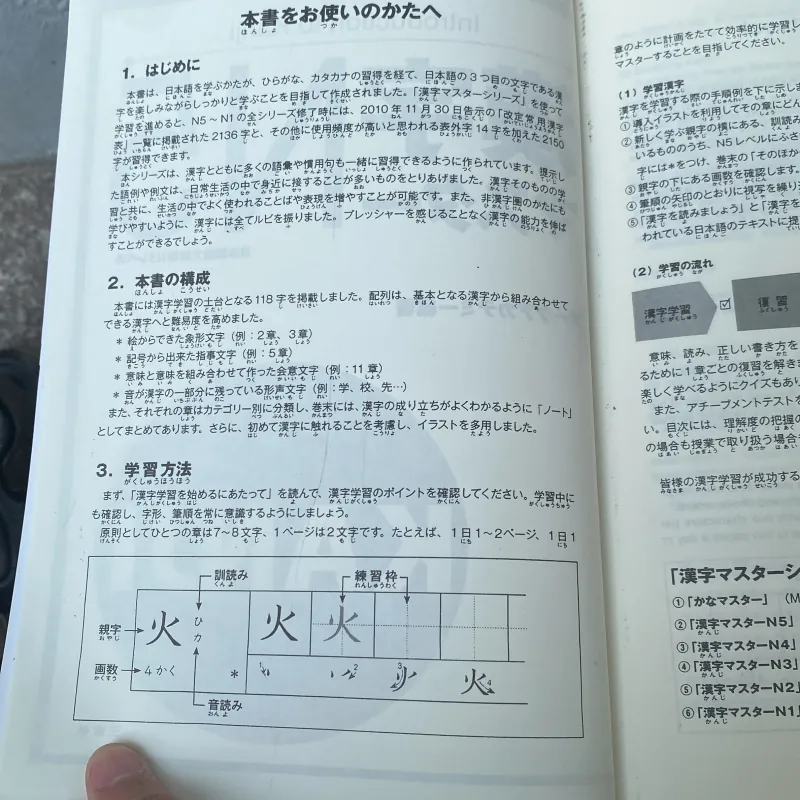 本書をお使いのかたへ
1．はじめに
本書は、日本語を学ぶかたが、ひらがな、カタカナの習得を経て、日本語の3つ目の文字である漢
字を楽しみながらしっかりと学ぶことを目指して作成されました。「漢字マスターシリーズ」を使って
学習を進めると、N5～N1の全シリーズ修了時には、2010年11月30日告示の「改定常用漢字
表」一覧に掲載された2136字と、その他に使用頻度が高いと思われる表外字14字を加えた2150
字が習得できます。
本シリーズは、漢字とともに多くの語彙や慣用句も一緒に習得できるように作られています。提示し
た語例や例文は、日常生活の中で身近に接することが多いものをとりあげました。漢字そのものの学
習と共に、生活の中でよく使われることばや表現を増やすことが可能です。また、非漢字圏のかたにも
学びやすいように、漢字には全てルビを振りました。プレッシャーを感じることなく漢字の能力を伸ば
すことができるでしょう。
2．本書の構成
本書には漢字学習の土台となる118字を掲載しました。配列は、基本となる漢字から組み合わせて
できる漢字へと難易度を高めました。
＊ 絵からできた象形文字（例：2章、3章）
＊ 記号から出来た指事文字（例：5章）
＊ 意味と意味を組み合わせて作った会意文字（例：11章）
＊ 音が漢字の一部分に残っている形声文字（例：学、校、先…）
また、それぞれの章はカテゴリー別に分類し、巻末には、漢字の成り立ちがよくわかるように「ノート」
としてまとめてあります。さらに、初めて漢字に触れることを考慮し、イラストを多用しました。
3．学習方法
まず、「漢字学習を始めるにあたって」を読んで、漢字学習のポイントを確認してください。学習中に
も確認し、字形、筆順を常に意識するようにしましょう。
原則としてひとつの章は7～8文字、1ページは2文字です。たとえば、1日1～2ページ、1日1
訓読み
練習枠
親字
火
ひ
カ
火
火
画数
4かく
＊
1
2
3
4
火
音読み
章のように計画をたてて効率的に学習し
マスターすることを目指してください。
（1）学習漢字
漢字を学習する際の手順例を下に示しま
①導入イラストを利用してその章にどん
②新しく学ぶ親字の横にある、訓読み
いるもののうち、N5レベルにふさ
字には＊をつけ、巻末の「そのほか
③親字の下にある画数を確認します。
④筆順の矢印のとおりに視写を繰り
⑤「漢字を読みましょう」と「漢字を
われている日本語のテキストに提
（2）学習の流れ
漢字学習
復習
意味、読み、正しい書き方を
るために1章ごとの復習を解きま
楽しく学べるようにクイズもあり
また、アチーブメントテストを
い。目次には、理解度の把握の
の場合も授業で取り扱う場合
皆様の漢字学習が成功する
「漢字マスターシ
①「かなマスター」（M
②「漢字マスターN5」
③「漢字マスターN4」
④「漢字マスターN3」
⑤「漢字マスターN2」
⑥「漢字マスターN1」